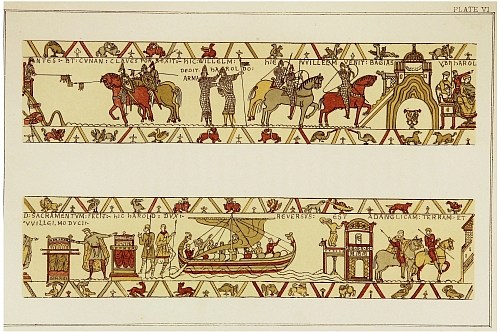 PLATE VI
ANTES: ET: CVNAN: CLAVES PORREXIT: HIC: WILLELM: HIE WILLELM VENIT: BAGIAS VBI HAROL
DEDIT HAROLDO:
ARMA
D: SACRAMENTVM: FECIT: HIC HAROLD: DVX: REVERSVS: EST AD ANGLICAM: TERRAM: ET
VVILLELMO DVCI: